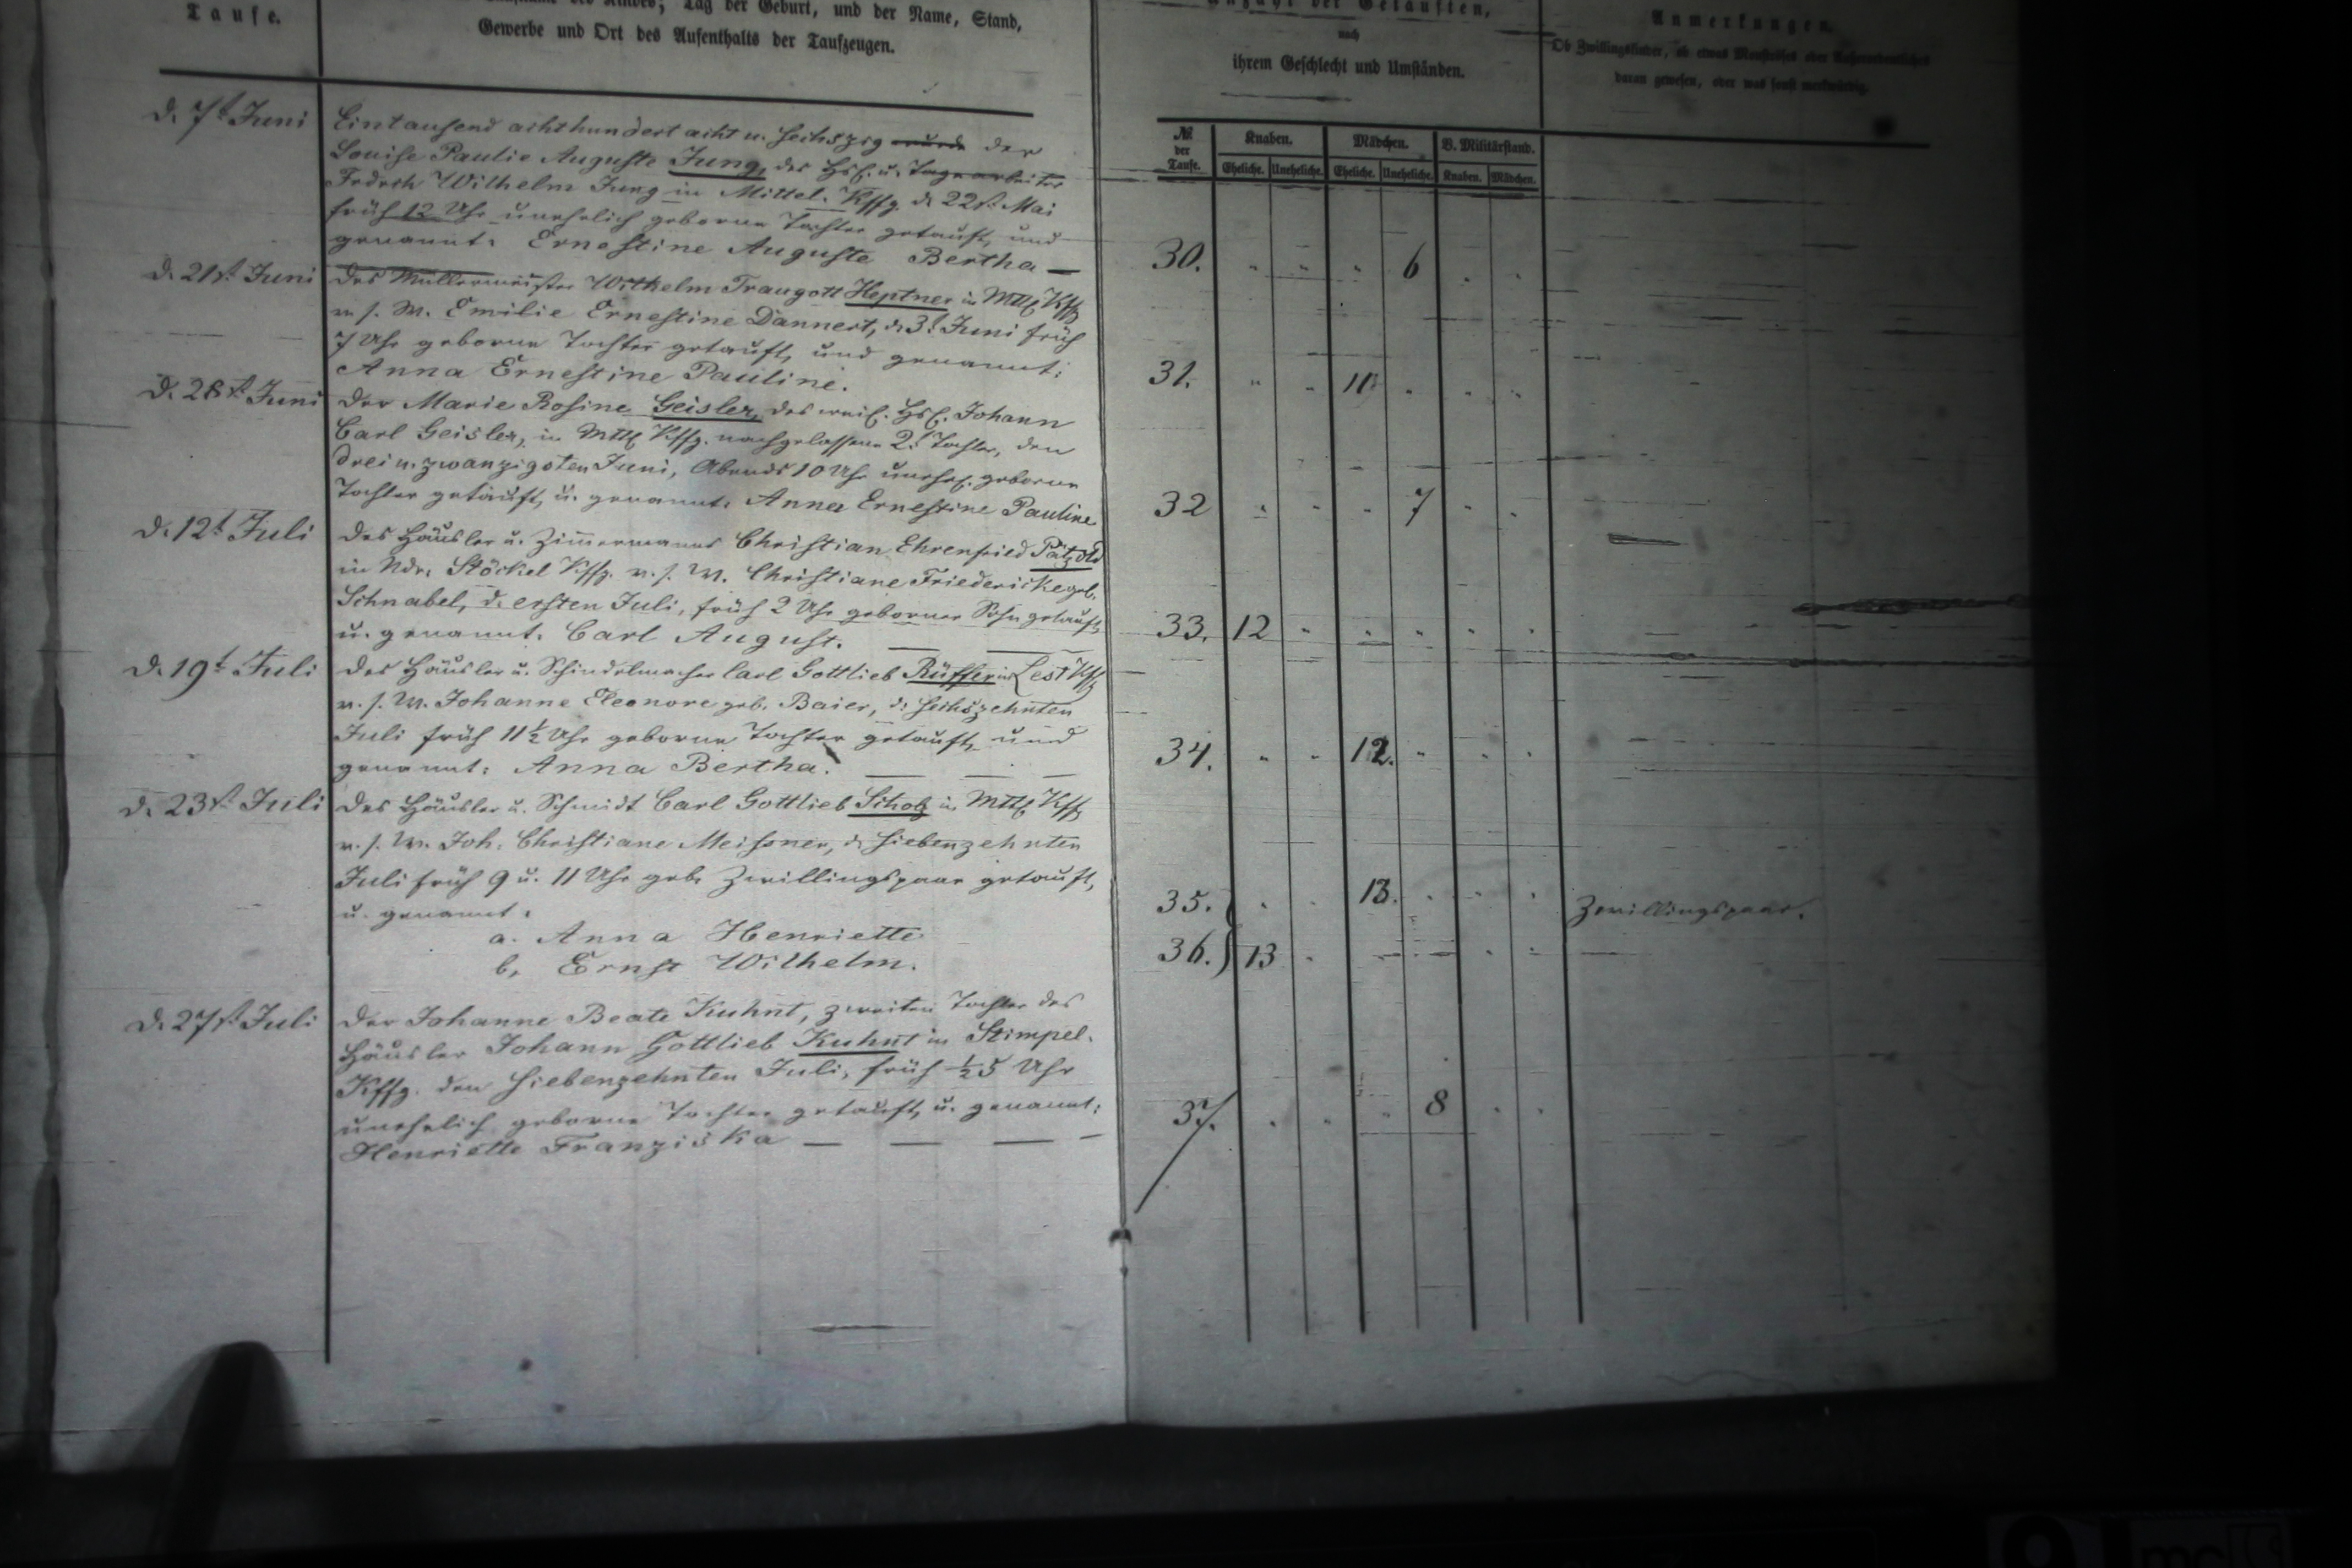 Taufe.
des Kindes; Tag der Geburt, und der Name, Stand,
Gewerbe und Ort des Aufenthalts der Taufzeugen.
Anzahl der Getauften,
nach
ihrem Geschlecht und Umständen.
Anmerkungen.
Ob Zwillingskinder, ob etwas Monströses oder Außerordentliches
daran gewesen, oder was sonst merkwürdig.
№ der Taufe.
Knaben. Mädchen. B. Militärstand.
Eheliche. Uneheliche. Eheliche. Uneheliche. Knaben. Mädchen.
d. 7t Juni
Eintausend achthundert acht u. sechszig wurde der
Louise Paulie Auguste Jung, des Hsl. u. Tagearbeiter
Fedrch Wilhelm Jung in Mittel. Kffg. d. 22st. Mai
früh 12 Uhr unehelich geborne Tochter getauft, und
genannt: Ernestine Auguste Bertha —
30. " " " 6 " "
d. 21st. Juni
Des Müllermeister Wilhelm Traugott Heptner in Mttl Kffg
v. s. W. Emilie Ernestine Dannert, d. 3t Juni früh
7 Uhr geborne Tochter getauft, und genannt:
Anna Ernestine Pauline.
31. " " 11 " " "
d. 28st. Juni
Der Marie Rosine Geisler, des weil. Hsl. Johann
Carl Geisler, in Mttl Kffg. nachgelassene 2t Tochter, den
drei u. zwanzigsten Juni, Abends 10 Uhr unehel. geborne
Tochter getauft, u. genannt: Anna Ernestine Pauline
32 " " " 7 " "
d. 12t Juli
Des Häusler u. Zimmermanns Christian Ehrenfried Pätzold
in Ndr. Stöckel Kffg. v. s. W. Christiane Friedericke geb.
Schnabel, d. ersten Juli, früh 2 Uhr geborner Sohn getauft,
u. genannt: Carl August.
33. 12 " " " " "
d. 19t Juli
Des Häusler u. Schindelmacher Carl Gottlieb Rüffer in Lest Kffg
v. s. W. Johanne Eleonore geb. Baier, d. sechszehnten
Juli früh 11½ Uhr geborne Tochter getauft, und
genannt: Anna Bertha.
34. " " 12. " " "
d. 23st. Juli
Des Häusler u. Schmidt Carl Gottlieb Scholz in Mttl Kffg
v. s. W. Joh. Christiane Meissner, d. siebenzehnten
Juli früh 9 u. 11 Uhr geb. Zwillingspaar getauft,
u. genannt:
a. Anna Henriette
b. Ernst Wilhelm.
35. " " 13. " " " Zwillingspaar.
36. 13 " " " " "
d. 27st. Juli
Der Johanne Beate Kuhnt, zweiten Tochter des
Häusler Johann Gottlieb Kuhnt in Stimpel.
Kffg. den siebenzehnten Juli, früh ½5 Uhr
unehelich geborne Tochter getauft, u. genannt:
Henriette Franziska — — — —
37. " " " 8 " "